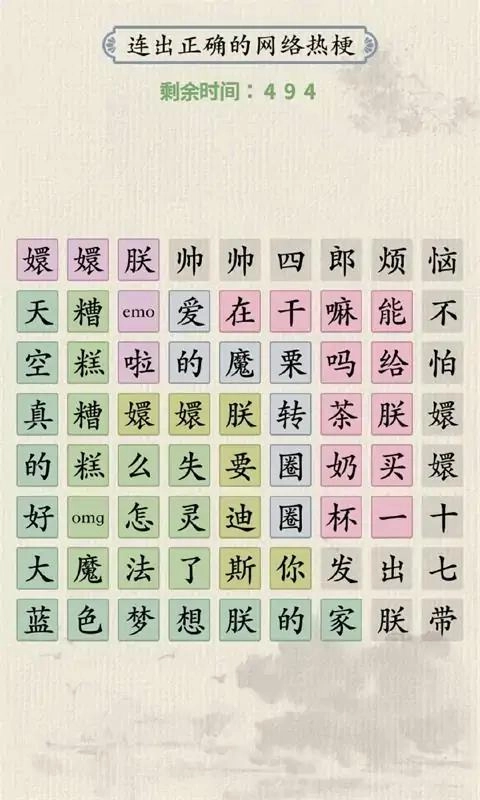 连出正确的网络热梗
剩余时间：494
嬛嬛朕帅帅四郎烦恼
天糟emo爱在干嘛能不
空糕啦的魔栗吗给怕
真糟嬛嬛朕转茶朕嬛
的糕么失要圈奶买嬛
好omg怎灵迪圈杯一十
大魔法了斯你发出七
蓝色梦想朕的家朕带